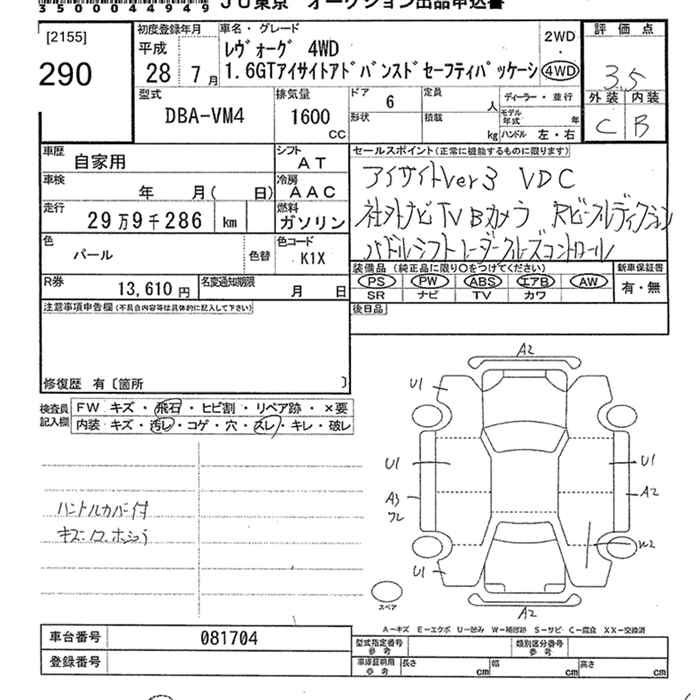 35000044949 JU東京 オークション出品申込書
[2155]
290
初度登録年月
平成
28年7月
車名・グレード
レヴォーグ 4WD
1.6GTアイサイトアドバンスドセーフティパッケージ
2WD
・
4WD
評価点
3.5
外装 内装
C B
型式
DBA-VM4
排気量
1600
CC
ドア 6
形状
定員 人
積載 kg
ディーラー・並行
モデル年式 年
ハンドル 左・右
車歴 自家用
シフト AT
車検 年 月( 日)
冷房 AAC
走行 29万9千286 km
燃料 ガソリン
色 パール
色替
色コード K1X
R券 13,610円
名変通知期限 月 日
セールスポイント(正常に機能するものに限ります)
アイサイトVer3 VDC
社外ナビTV Bカメラ Rビークルディテクション
パドルシフト レーダークルーズコントロール
装備品(純正品に限り○をつけてください)
PS PW ABS エアB AW
SR ナビ TV カワ
新車保証書
有・無
後日品
注意事項申告欄(不具合内容等は具体的に記入して下さい)
修復歴 有〔箇所 〕
検査員記入欄
FW キズ・飛石・ヒビ割・リペア跡・×要
内装 キズ・汚レ・コゲ・穴・スレ・キレ・破レ
ハンドルカバー付
A2
U1
U1
U1
A3
A2
W2
U1
スペア
A2
A-キズ E-エクボ U-凹み W-補修跡 S-サビ C-腐食 XX-交換済
車台番号 081704
登録番号
型式指定番号 参考
類別区分番号 参考
車庫証明用 参考
長さ cm
幅 cm
高さ cm